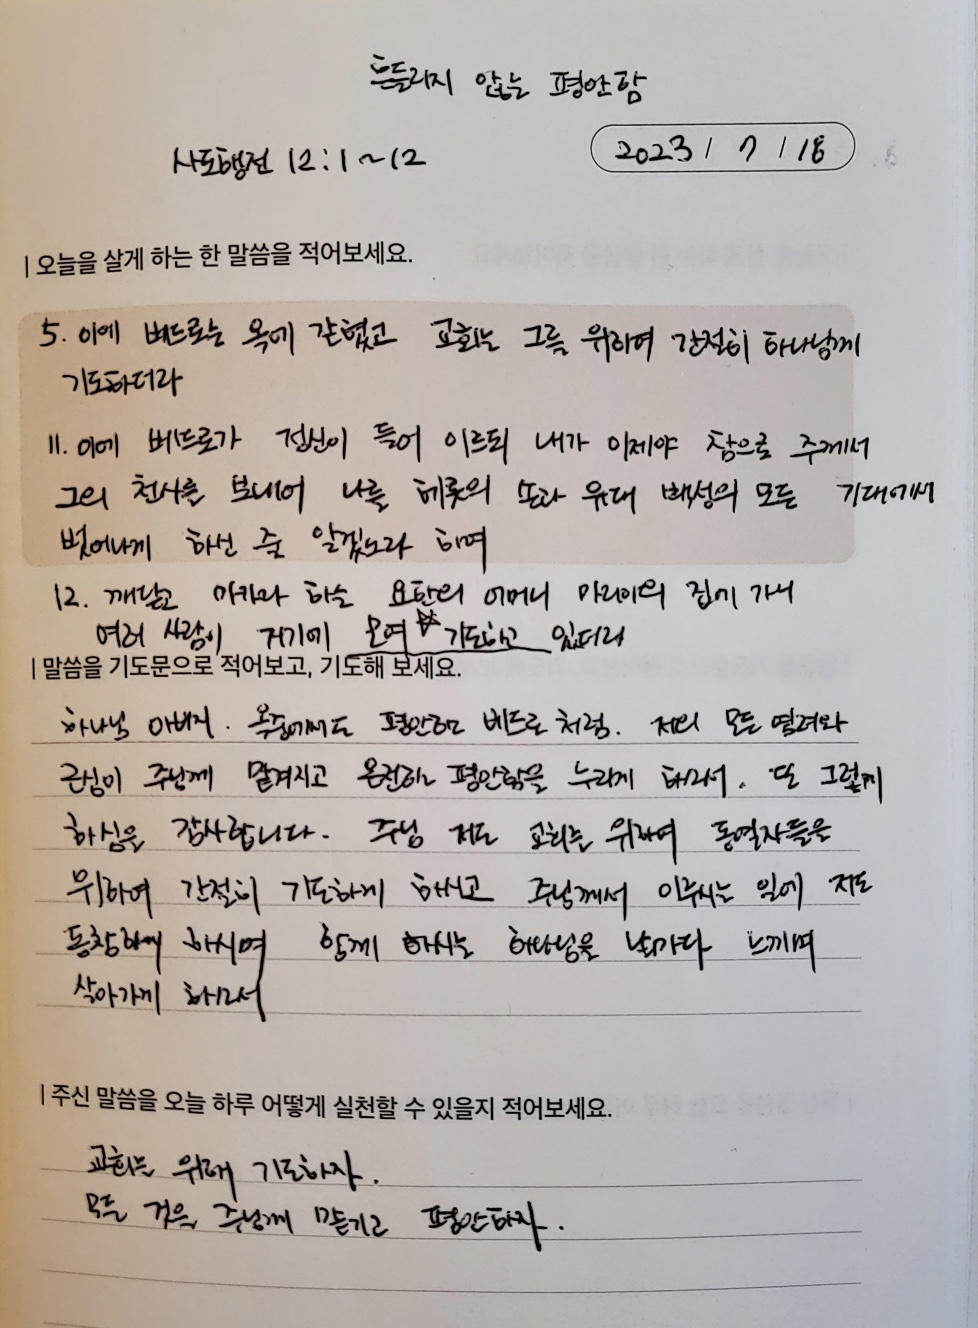 흔들리지 않는 평안함
사도행전 12:1~12
2023 / 7 / 18
| 오늘을 살게 하는 한 말씀을 적어보세요.
5. 이에 베드로는 옥에 갇혔고 교회는 그를 위하여 간절히 하나님께
기도하더라
11. 이에 베드로가 정신이 들어 이르되 내가 이제야 참으로 주께서
그의 천사를 보내어 나를 헤롯의 손과 유대 백성의 모든 기대에서
벗어나게 하신 줄 알겠노라 하여
12. 깨닫고 마가라 하는 요한의 어머니 마리아의 집에 가니
여러 사람이 거기에 모여 기도하고 있더라
| 말씀을 기도문으로 적어보고, 기도해 보세요.
하나님 아버지. 옥중에서도 평안한 베드로처럼. 저의 모든 염려와
근심이 주님께 맡겨지고 온전히 평안함을 누리게 하소서. 또 그렇게
하심을 감사합니다. 주님 저도 교회를 위하여 동역자들을
위하여 간절히 기도하게 하시고 주님께서 이루시는 일에 저도
동참하게 하시며 함께 하시는 하나님을 날마다 느끼며
살아가게 하소서
| 주신 말씀을 오늘 하루 어떻게 실천할 수 있을지 적어보세요.
교회를 위해 기도하자.
모든 것을 주님께 맡기고 평안하자.